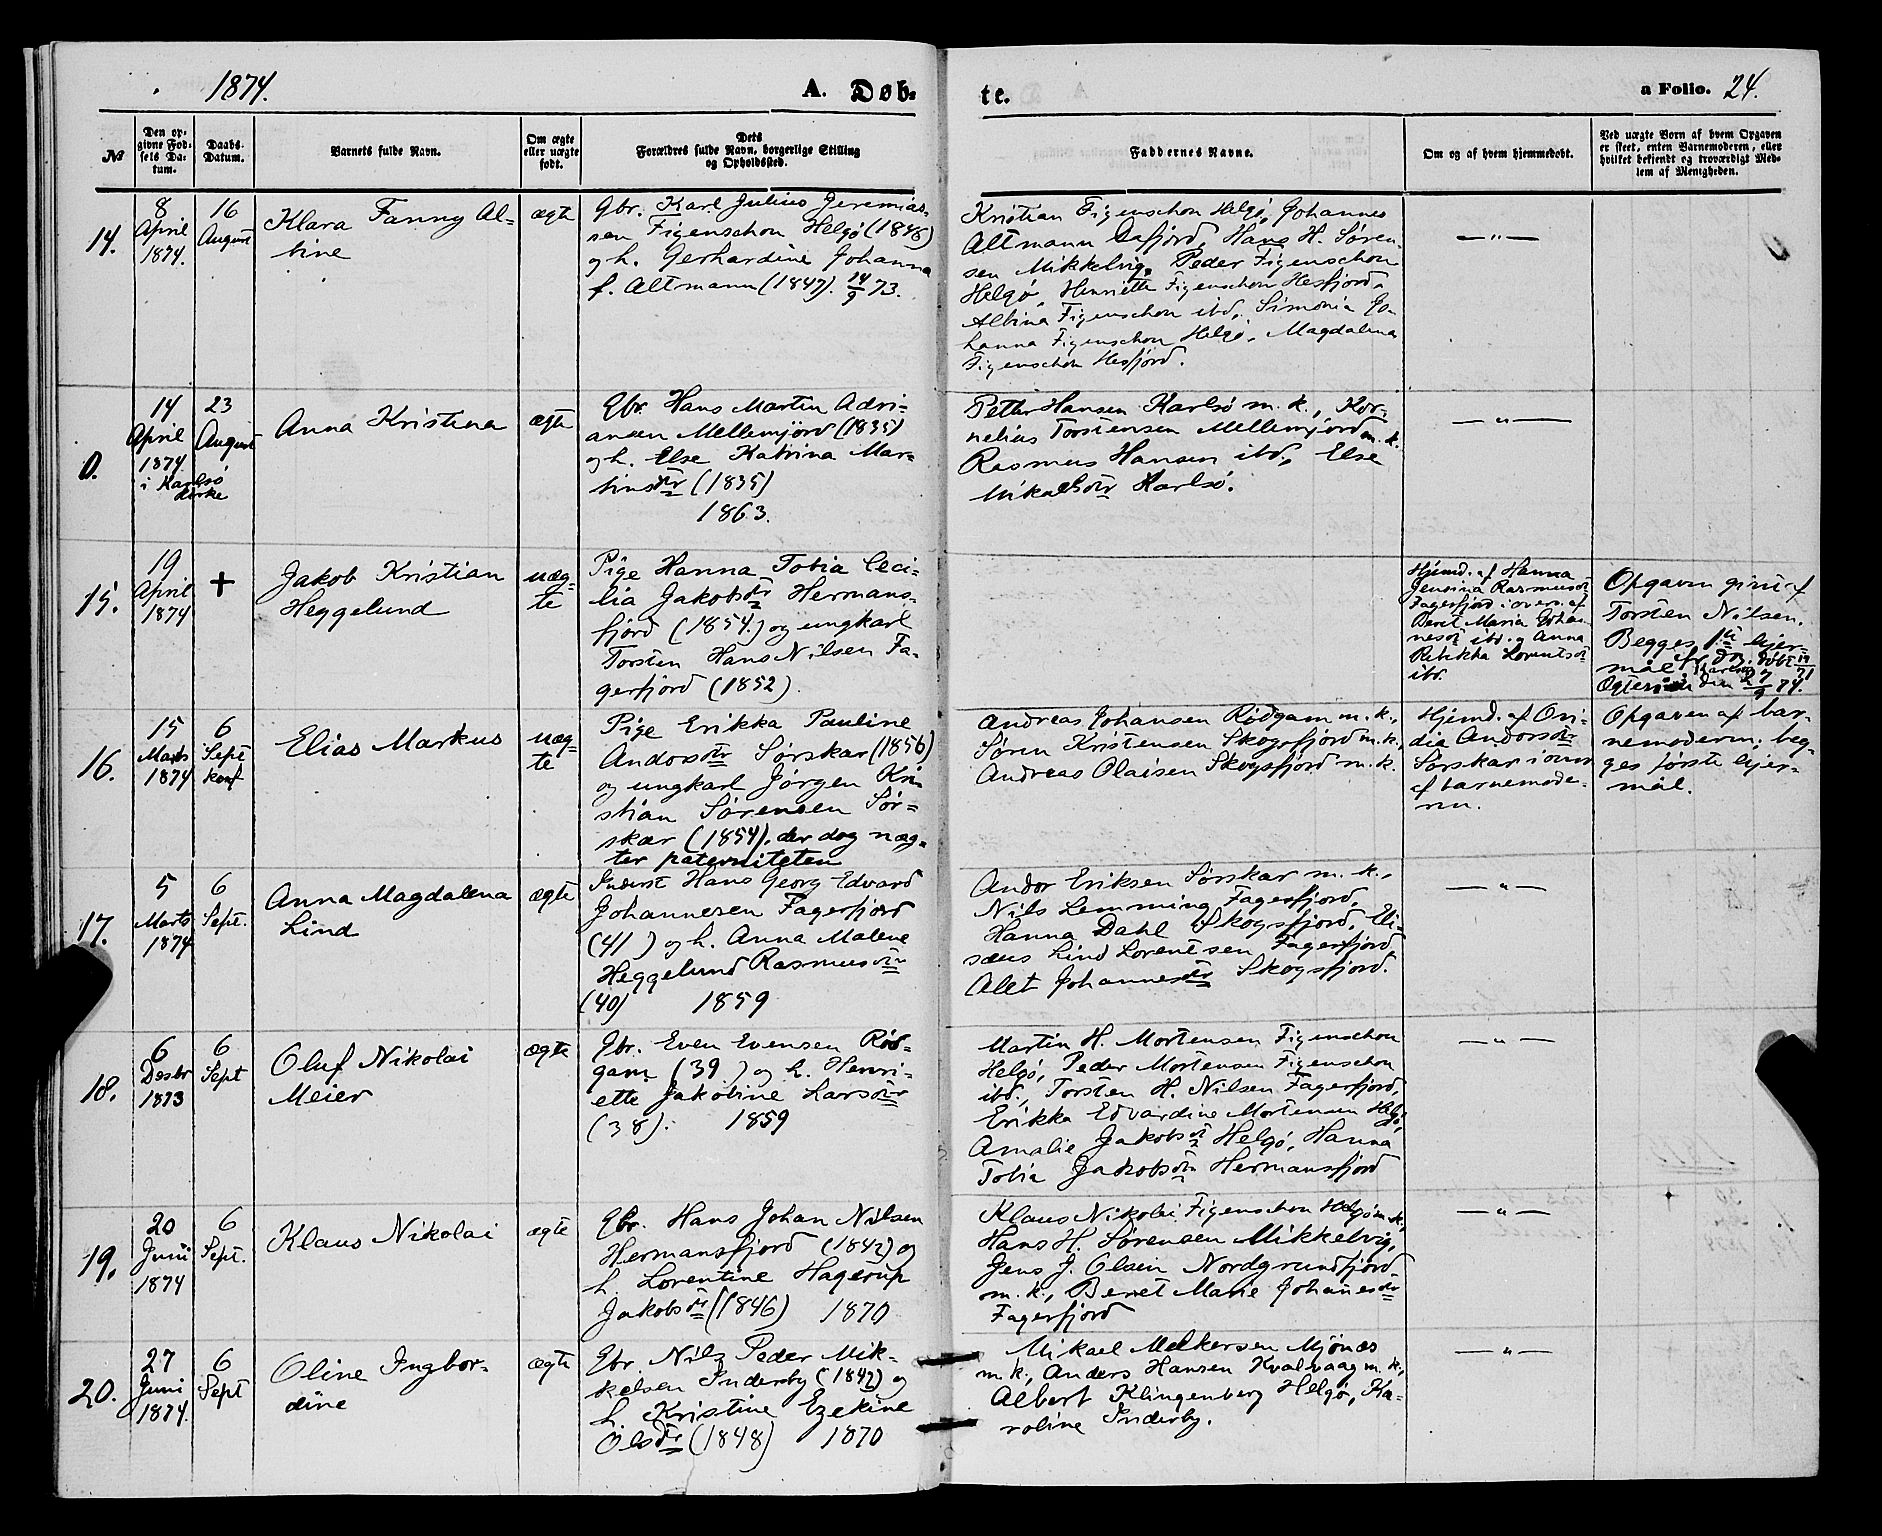 1874.
A. Døb-
te.
a Folio. 24.
№
Den op-
givne Fød-
sels Da-
tum.
Daabs-
Datum.
Barnets fulde Navn.
Om ægte
eller uægte
født.
Dets
Forældres fulde Navn, borgerlige Stilling
og Opholdssted.
Faddernes Navne.
Om og af hvem hjemmedøbt.
Ved uægte Børn af hvem Opgaven
er skeet, enten Barnemoderen, eller
hvilket bekjendt og troværdigt Med-
lem af Menigheden.
14.
8
April
1874.
16
August
Klara Fanny Al-
bine
ægte
Gbr. Karl Julius Jeremias-
sen Figenschou Helgø (1848)
og h. Gerhardine Johanna
f. Altmann (1847). 14/9 73.
Kristian Figenschou Helgø, Johannes
Altmann Dafjord, Hans H. Søren-
sen Mikkelvig, Peder Figenschou
Helgø, Henriette Figenschou Hesfjord,
Albina Figenschou ibd., Simonia Jo-
hanna Figenschou Helgø, Magdalena
Figenschou Hesfjord.
— " —
0.
14
April
1874
i Karlsø
kirke
23
August
Anna Kristina
ægte
Gbr. Hans Martin Adri-
ansen Mellemjord (1835)
og h. Else Katrina Mar-
tinsdtr (1835)
1863.
Petter Hansen Karlsø m. k., Kor-
nelius Torstensen Mellemjord m. k.
Rasmus Hansen ibd., Else
Mikalsdtr Karlsø.
— " —
15.
19
April
1874
+
Jakob Kristian
Heggelund
uæg-
te
Pige Hanna Tobia Ceci-
lia Jakobsdtr Hermans-
fjord (1854.) og ungkarl
Torsten Hans Nilsen Fa-
gerfjord (1852).
Hjemd. af Hanna
Jensina Rasmusdt
Fagerfjord i overv. af
Beret Maria Johan-
nesdt ibd. og Anna
Rebekka Lorentsdt
ibd.
Opgaven givet af
Torsten Nilsen.
Begges 1ste leier-
mål
den 27/9 74.
16.
15
Marts
1874
6
Sept
konf
Elias Markus
uæg-
te
Pige Erikka Pauline
Andorsdtr Sørskar (1856)
og ungkarl Jørgen Kri-
stian Sørensen Sør-
skar (1854), der dog næg-
ter paterniteten
Andreas Johansen Rødgam m. k.,
Søren Kristensen Skogsfjord m. k.,
Andreas Olaisen Skogsfjord m. k.
Hjemd. af Ovi-
dia Andorsdtr
Sørskar i overv
af barnemode-
ren.
Opgaven af bar-
nemoderen; beg-
ges første leier-
mål.
17.
5
Marts
1874
6
Sept.
Anna Magdalena
Lind
ægte
Inderst Hans Georg Edvard
Johannesen Fagerfjord
(41) og h. Anna Malene
Heggelund Rasmusdtr
(40) 1859
Andor Eriksen Sørskar m. k.,
Nils Lemming Fagerfjord,
Hanna Dahl Skogsfjord, Eli-
sæus Lind Lorentsen Fagerfjord
Alet Johannesdtr Skogsfjord.
— " —
18.
6
Desbr
1873
6
Sept
Oluf Nikolai
Meier
ægte
Gbr. Even Evensen Rød-
gam (39) og h. Henri-
ette Jakobine Larsdtr
(38). 1859
Martin H. Mortensen Figenschou
Helgø, Peder Mortensen Figenschou
ibd., Torsten H. Nilsen Fagerfjord,
Erikka Edvardine Mortensen Helgø,
Amalie Jakobsdt Helgø, Hanna
Tobia Jakobsdtr Hermansfjord
— " —
19.
20
Juni
1874
6
Sept.
Klaus Nikolai
ægte
Gbr. Hans Johan Nilsen
Hermansfjord (1842) og
h. Lorentine Hagerup
Jakobsdt (1846) 1870
Klaus Nikolai Figenschou Helgø m. k.,
Hans H. Sørensen Mikkelvig,
Jens J. Olsen Nordgrundfjord
m. k., Beret Marie Johanesdtr
Fagerfjord
— " —
20.
27
Juni
1874.
6
Sept
Oline Ingbor-
dine
ægte
Gbr. Nils Peder Mik-
kelsen Inderby (1842) og
h. Kristine Ezekine
Olsdtr (1848) 1870
Mikael Melkersen Mjønes
m. k., Anders Hansen Kvalvaag m. k.,
Albert Klingenberg Helgø, Ka-
roline Inderby.
— " —